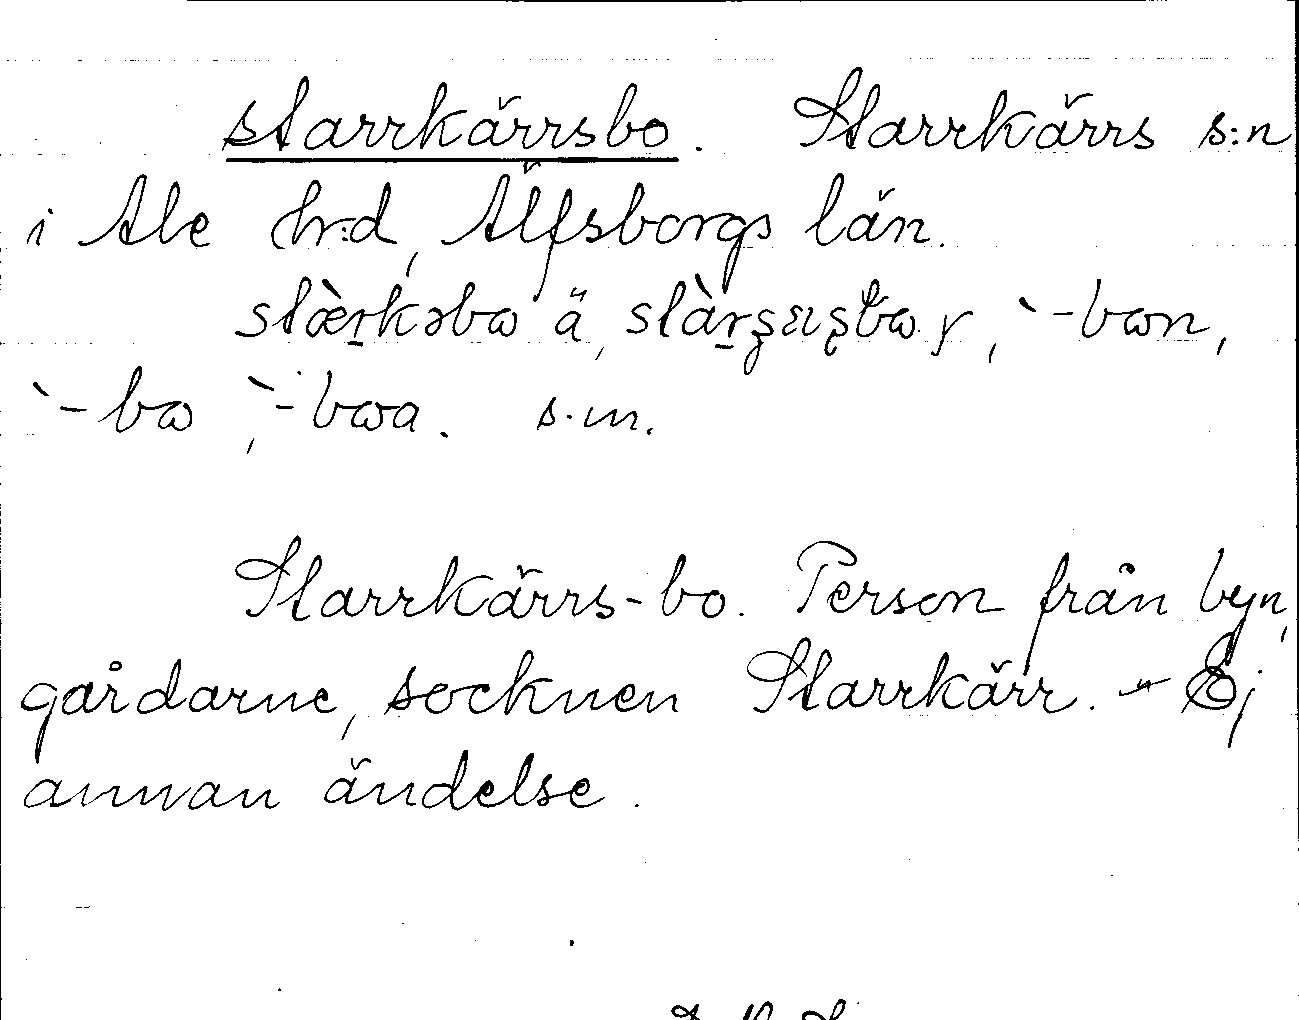 starrkärrsbo. Starrkärrs s:n
i Ale hr:d, Älfsborgs län.
ä, y, `-bωn,
`-bω, `-bωa. s.m.
Starrkärrs-bo. Person från byn,
gårdarne, socknen Starrkärr. - Ej
annan ändelse.